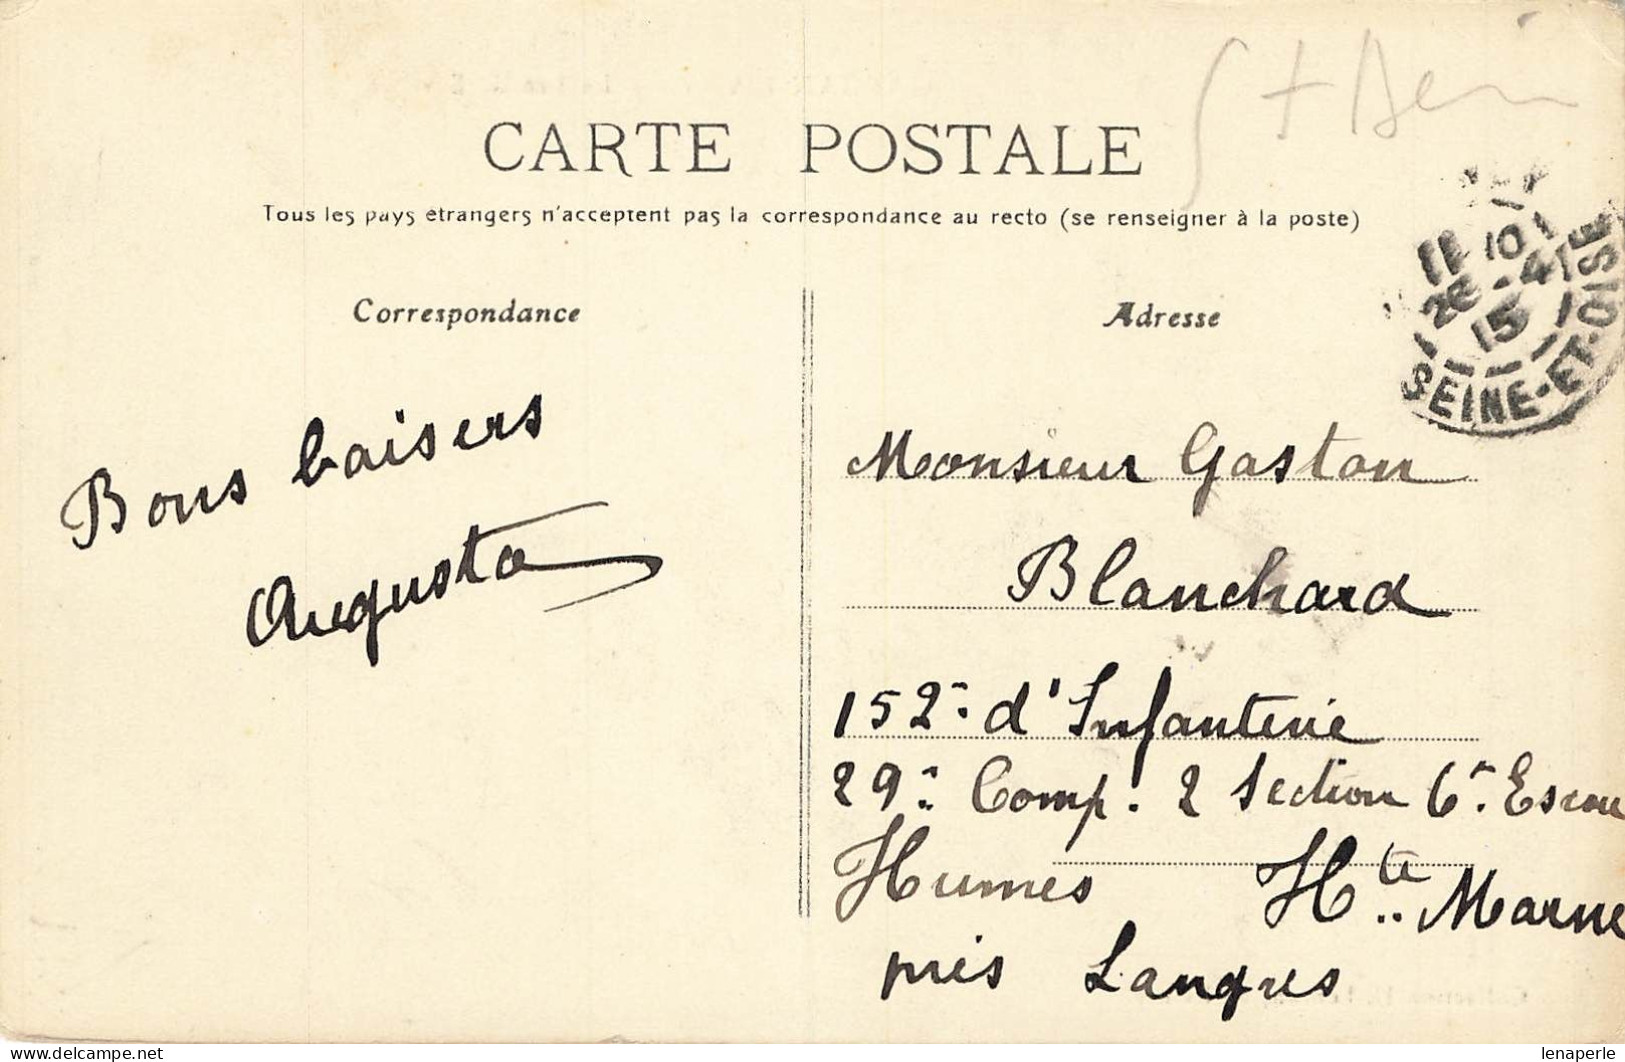 St Deni
CARTE POSTALE
Tous les pays étrangers n'acceptent pas la correspondance au recto (se renseigner à la poste)
Correspondance
Adresse
11 10
26 - 4
15
SEINE-ET-OISE
Bons baisers
Augusta
Monsieur Gaston
Blanchard
152e d'Infanterie
29e Comp. 2 Section 6e Escou
Humes Hte Marne
près Langres
lenaperle